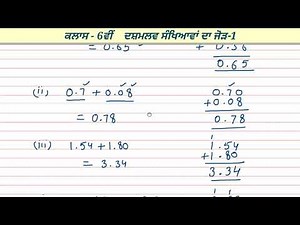 ਕਲਾਸ - 6ਵੀਂ ਦਸ਼ਮਲਵ ਸੰਖਿਆਵਾਂ ਦਾ ਜੋੜ-1
= 0.65 + 0.36
0.65
(ii) 0.7 + 0.08 0.70
+ 0.08
= 0.78 0.78
(iii) 1.54 + 1.80 1.54
+ 1.80
= 3.34 3.34